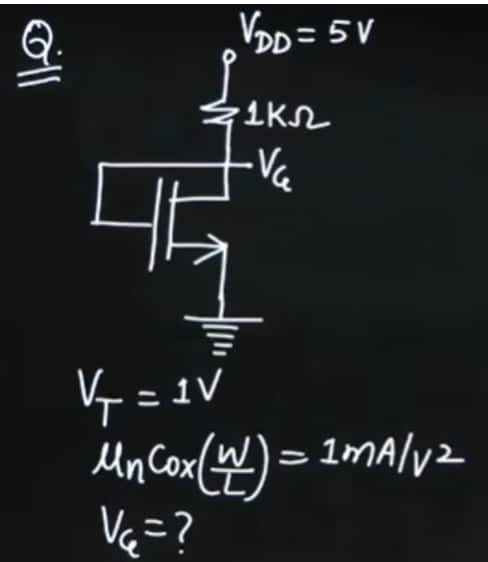 Q.
VDD = 5V
1KΩ
VG
VT = 1V
μnCox(W/L) = 1mA/V2
VG = ?